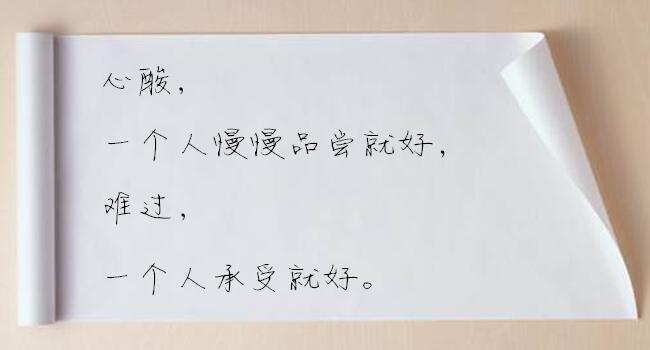 心酸，
一个人慢慢品尝就好，
难过，
一个人承受就好。